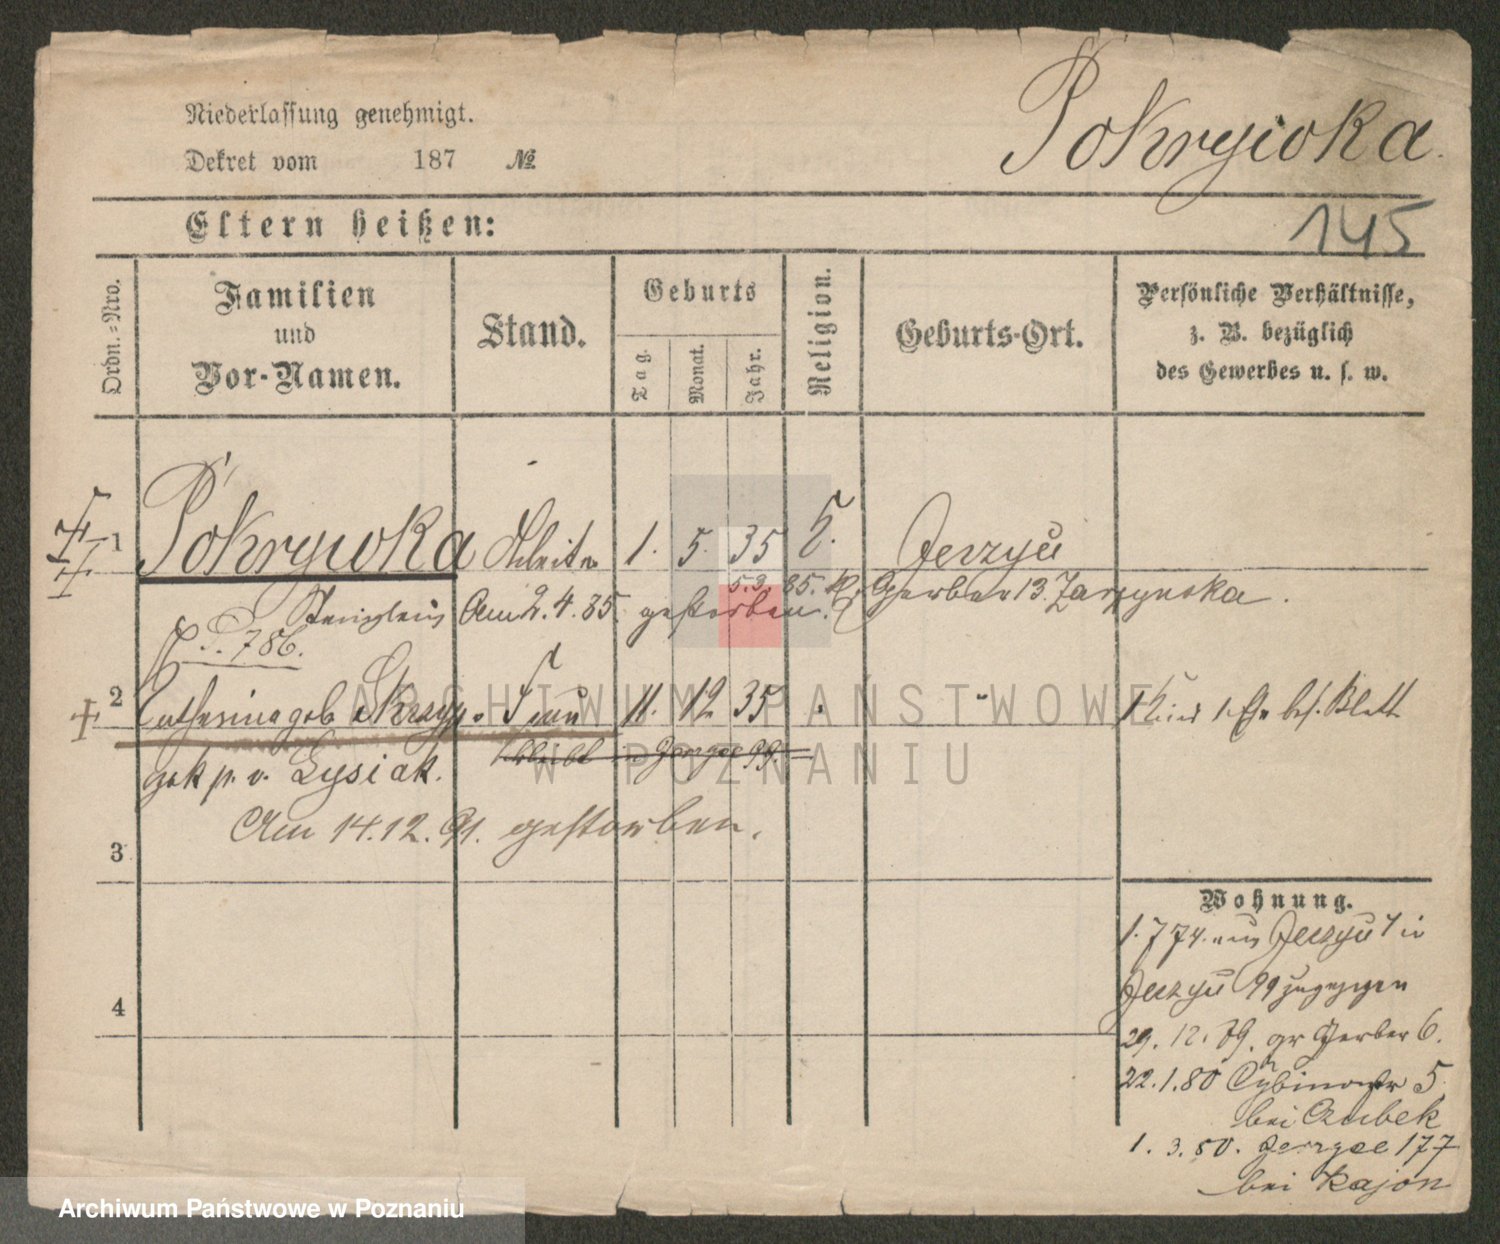 Niederlassung genehmigt.
Pokrywka.
Dekret vom 187 №
Eltern heißen:
145
Ordn.-Nro.
Familien
und
Vor-Namen.
Stand.
Geburts
Tag.
Monat.
Jahr.
Religion.
Geburts-Ort.
Persönliche Verhältnisse,
z. B. bezüglich
des Gewerbes u. s. w.
1 Pokrywka Arbeiter 1. 5. 35 Jerzyce
5.3.85. Gerber 13. Zarzynska.
Am 2.4.85. gestorben.
P. 786.
2 Catharina geb Skrzyp. Frau 11. 12 35 1 Kind bes. Blatt
Lysiak.
Jerzyce 99.
Am 14.12.91. gestorben.
3
4
Wohnung.
1. 7 74. aus Jerzyce 1 in
Jerzyce 99 zugezogen
29. 12. 79. gr Gerber 6.
22.1.80 5.
bei Kubek
1. 3. 80. Jerzyce 177
bei Kajon
ARCHIWUM PAŃSTWOWE
W POZNANIU
Archiwum Państwowe w Poznaniu